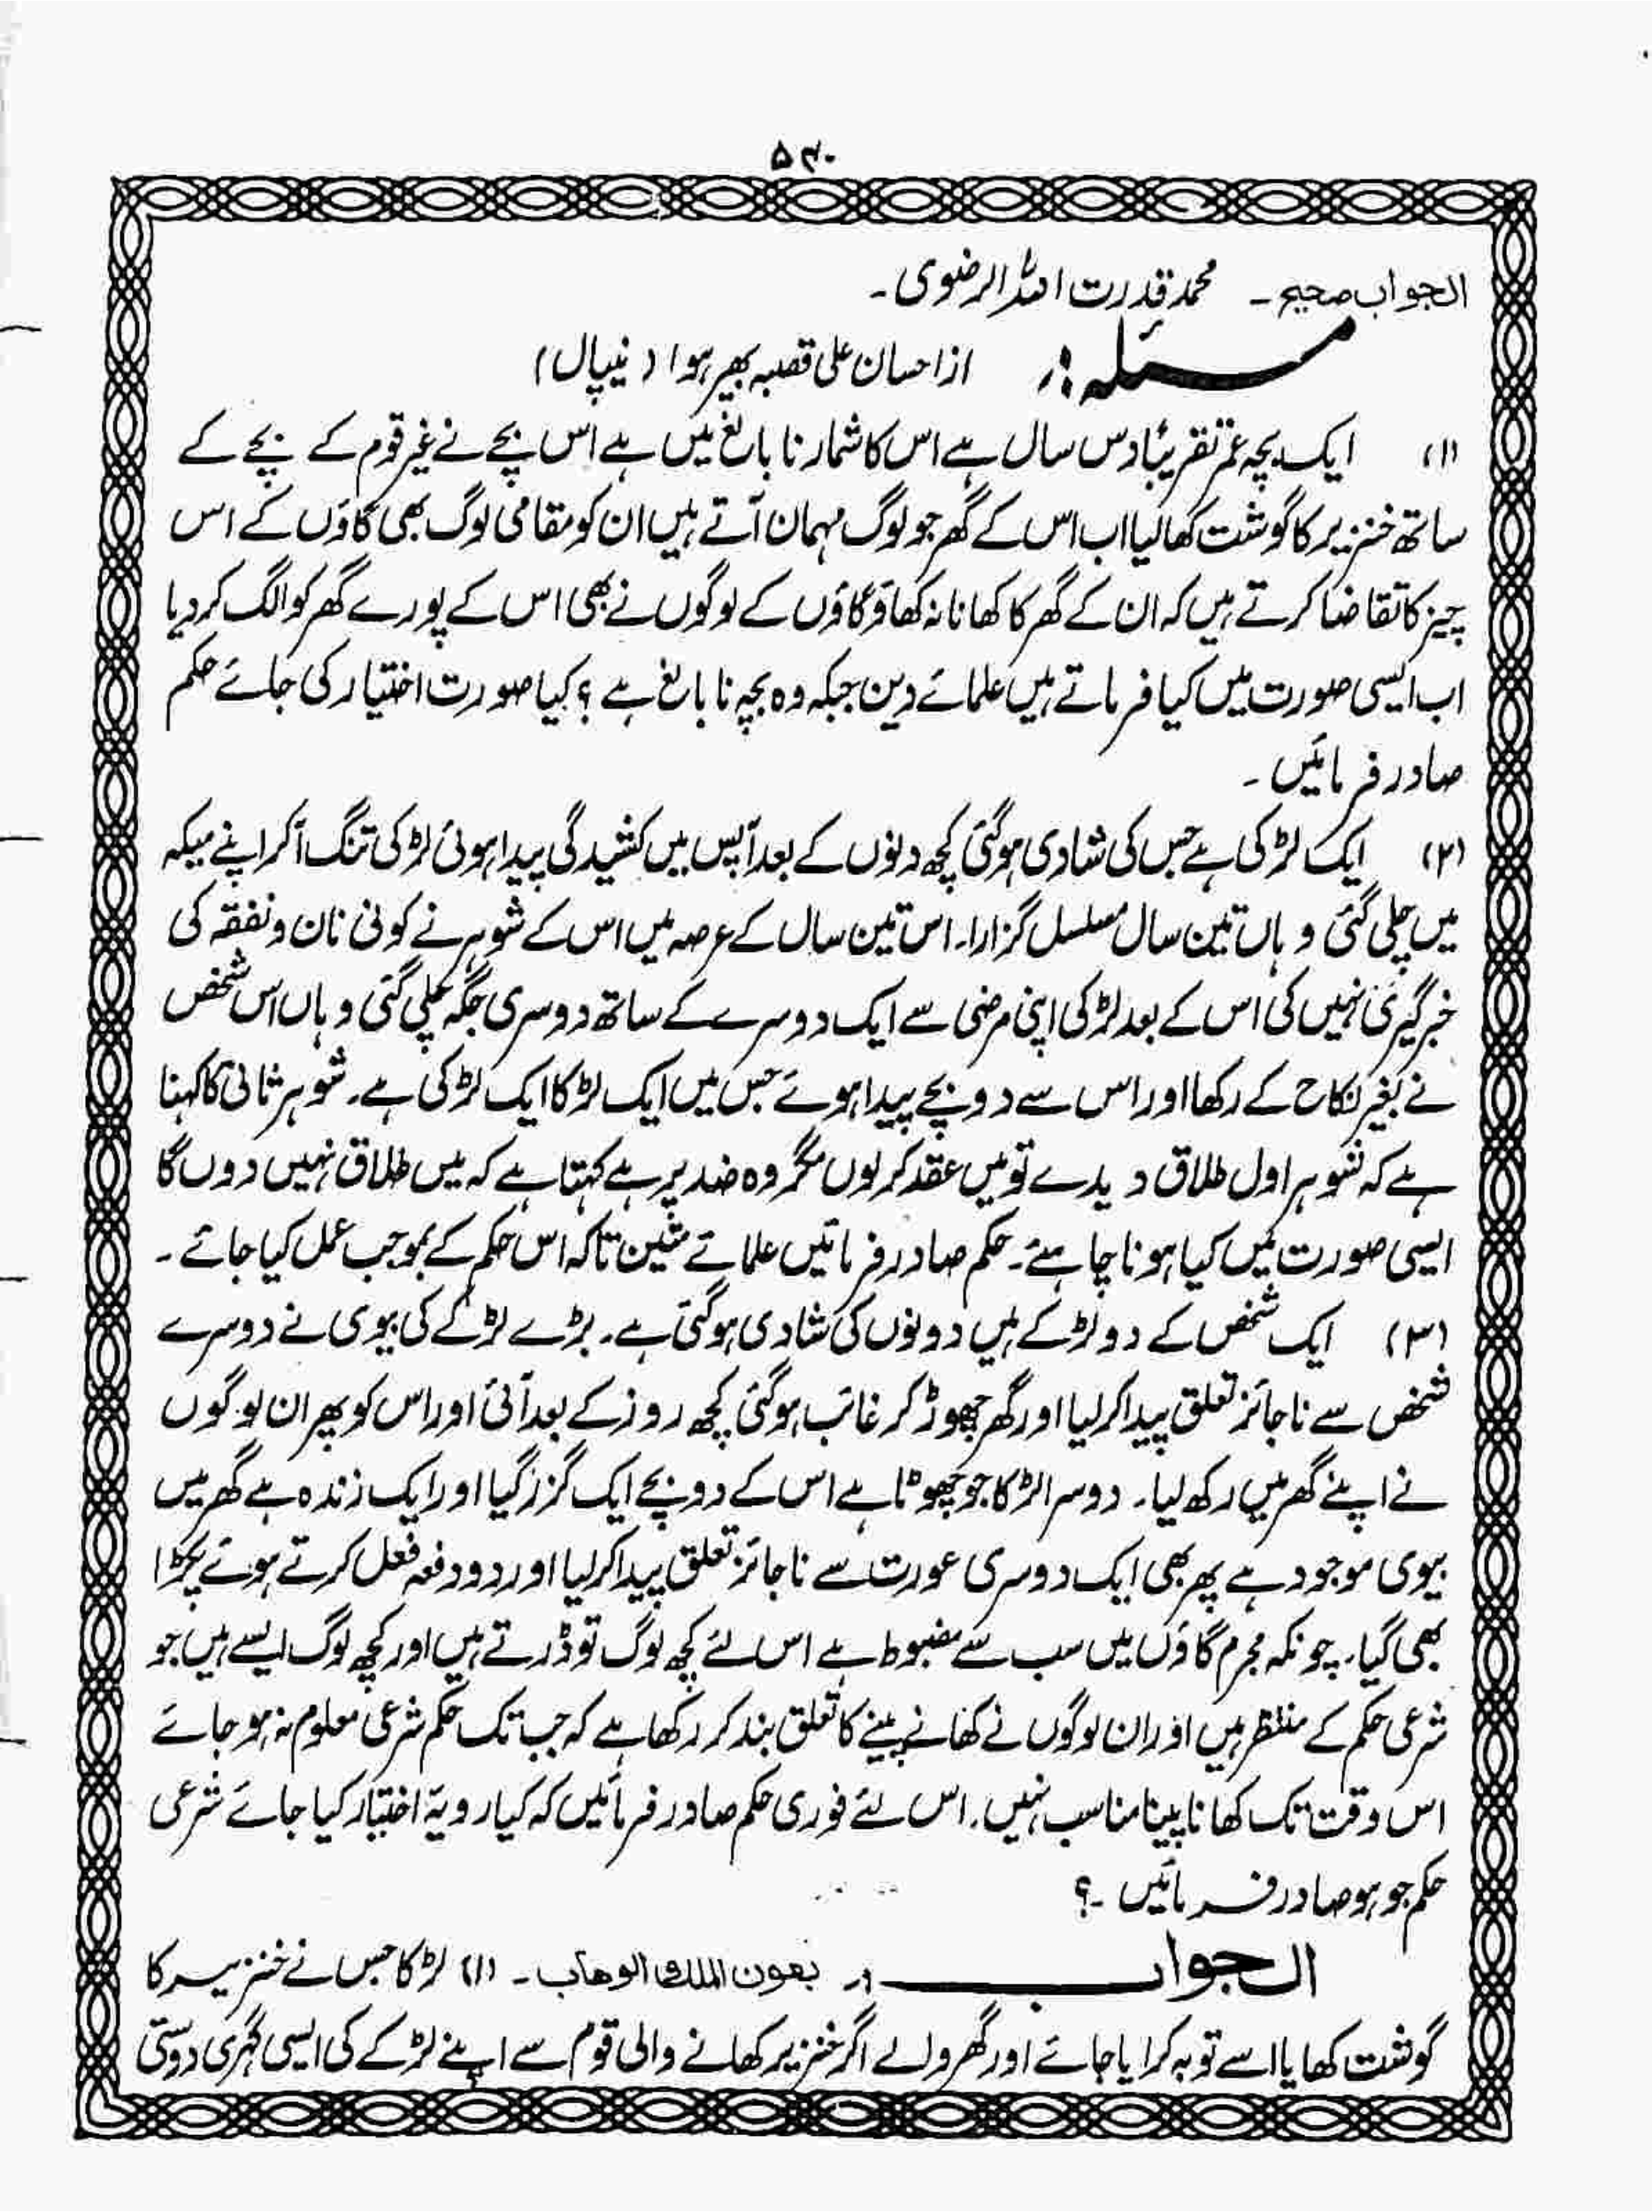 ۵۳۰
الجواب صحیح۔ محمد قدرت اللہ الرضوی۔
مسئلہ:۔ از احسان علی قصبہ بھیرہوا (نیپال)
(۱) ایک بچہ عمر تقریباً دس سال ہے اس کا شمار نا بالغ میں ہے اس بچے نے غیر قوم کے بچے کے
ساتھ خنزیر کا گوشت کھا لیا اب اس کے گھر جو لوگ مہمان آتے ہیں ان کو مقامی لوگ بھی گاؤں کے اس
چیز کا تقاضا کرتے ہیں کہ ان کے گھر کا کھانا نہ کھاؤ گاؤں کے لوگوں نے بھی اس کے پورے گھر کو الگ کر دیا
اب ایسی صورت میں کیا فرماتے ہیں علمائے دین جبکہ وہ بچہ نا بالغ ہے ؟ کیا صورت اختیار کی جائے حکم
صادر فرمائیں ۔
(۲) ایک لڑکی ہے جس کی شادی ہوگئی کچھ دنوں کے بعد آپس میں کشیدگی پیدا ہوئی لڑکی تنگ آکر اپنے میکہ
میں چلی گئی وہاں تین سال مسلسل گزارا۔ اس تین سال کے عرصہ میں اس کے شوہر نے کوئی نان و نفقہ کی
خبر گیری نہیں کی اس کے بعد لڑکی اپنی مرضی سے ایک دوسرے کے ساتھ دوسری جگہ چلی گئی وہاں اس شخص
نے بغیر نکاح کے رکھا اور اس سے دو بچے پیدا ہوئے جس میں ایک لڑکا ایک لڑکی ہے۔ شوہر ثانی کا کہنا
ہے کہ شوہر اول طلاق دیدے تو میں عقد کر لوں مگر وہ ضد پر ہے کہتا ہے کہ میں طلاق نہیں دوں گا
ایسی صورت میں کیا ہونا چاہئے۔ حکم صادر فرمائیں علمائے متین تاکہ اس حکم کے بموجب عمل کیا جائے ۔
(۳) ایک شخص کے دو لڑکے ہیں دونوں کی شادی ہوگئی ہے۔ بڑے لڑکے کی بیوی نے دوسرے
شخص سے ناجائز تعلق پیدا کر لیا اور گھر چھوڑ کر غائب ہوگئی کچھ روز کے بعد آئی اور اس کو پھر ان لوگوں
نے اپنے گھر میں رکھ لیا۔ دوسرا لڑکا جو چھوٹا ہے اس کے دو بچے ایک گزر گیا اور ایک زندہ ہے گھر میں
بیوی موجود ہے پھر بھی ایک دوسری عورت سے ناجائز تعلق پیدا کر لیا اور دو دفعہ فعل کرتے ہوئے پکڑا
بھی گیا۔ چونکہ مجرم گاؤں میں سب سے مضبوط ہے اس لئے کچھ لوگ تو ڈرتے ہیں اور کچھ لوگ ایسے ہیں جو
شرعی حکم کے منتظر ہیں اور ان لوگوں نے کھانے پینے کا تعلق بند کر رکھا ہے کہ جب تک حکم شرعی معلوم نہ ہو جائے
اس وقت تک کھانا پینا مناسب نہیں۔ اس لئے فوری حکم صادر فرمائیں کہ کیا رویہ اختیار کیا جائے شرعی
حکم جو ہو صادر فرمائیں ۔؟
الجواب :۔ بعون الملک الوهاب ۔ (۱) لڑکا جس نے خنزیر کا
گوشت کھایا اسے توبہ کرایا جائے اور گھر والے اگر خنزیر کھانے والی قوم سے اپنے لڑکے کی ایسی گہری دوستی